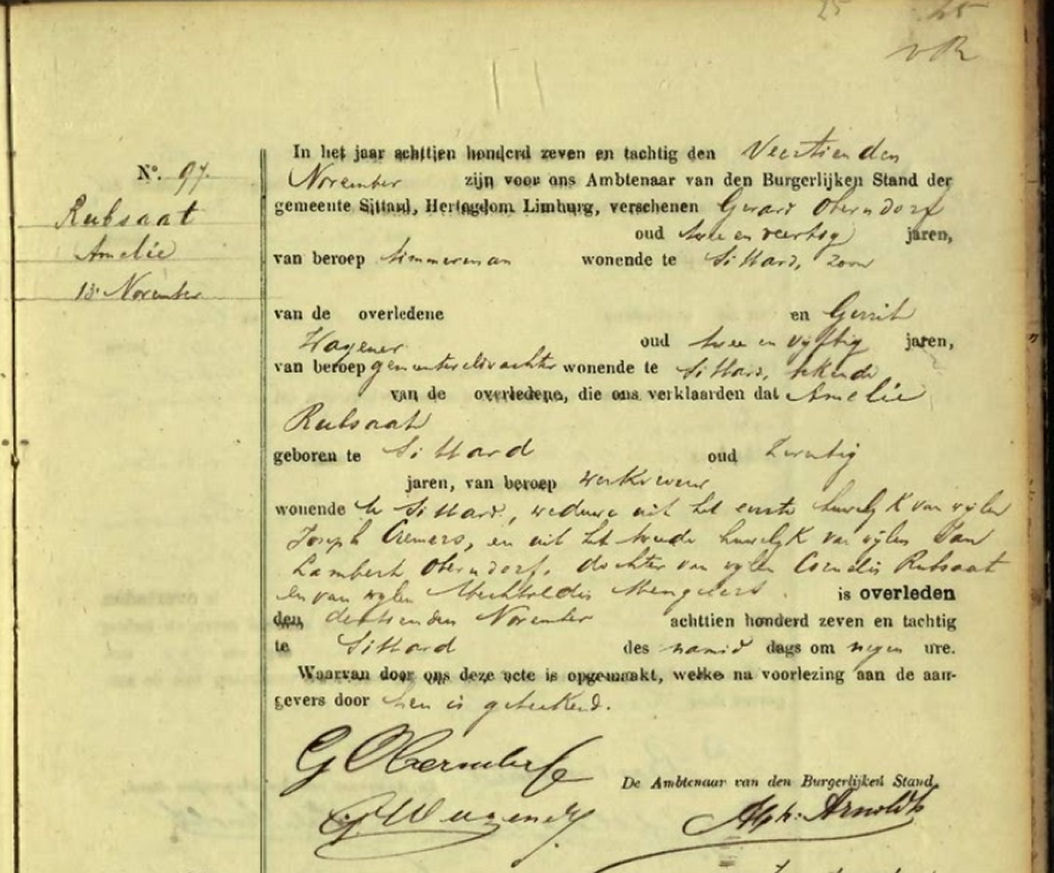 25
vR
Nº. 97.
Rubsaat
Amelie
13 November
In het jaar achttien honderd zeven en tachtig den Veertienden
November zijn voor ons Ambtenaar van den Burgerlijken Stand der
gemeente Sittard, Hertogdom Limburg, verschenen Gerard Oberndorf
oud twee en veertig jaren,
van beroep timmerman wonende te Sittard, zoon
van de overledene en Gerrit
Wagener oud twee en vijftig jaren,
van beroep wonende te Sittard, bekende
van de overledene, die ons verklaarden dat Amelie
Rubsaat
geboren te Sittard oud zeventig
jaren, van beroep werkvrouw
wonende te Sittard, weduwe uit het eerste huwelijk van wijlen
Joseph Cremers, en uit het tweede huwelijk van wijlen Jan
Lambert Oberndorf, dochter van wijlen Cornelis Rubsaat
en van wijlen Mechtoldis is overleden
den dertienden November achttien honderd zeven en tachtig
te Sittard des namid dags om negen ure.
Waarvan door ons deze acte is opgemaakt, welke na voorlezing aan de aan-
gevers door hen is geteekend.
G Oberndorf
De Ambtenaar van den Burgerlijken Stand,
G Wagener
Alph. Arnoldts